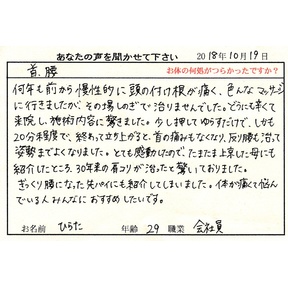 あなたの声を聞かせて下さい 2018年10月19日
首、腰 お体の何処がつらかったですか?
何年も前から慢性的に頭の付け根が痛く、色んなマッサージ
に行きましたが、その場しのぎで治りませんでした。どうにも辛くて
来院し、施術内容に驚きました。少し押してゆらすだけで、しかも
20分程度で、終わって立ち上がると、首の痛みもなくなり、反り腰も治って
姿勢までよくなりました。とても感動したので、たまたま上京した母にも
紹介したところ、30年来の肩コリが治ったと驚いておりました。
ぎっくり腰になった先パイにも紹介してしまいました。体が痛くて悩ん
でいる人みんなにおすすめしたいです。
お名前 ひらた 年齢 29 職業 会社員